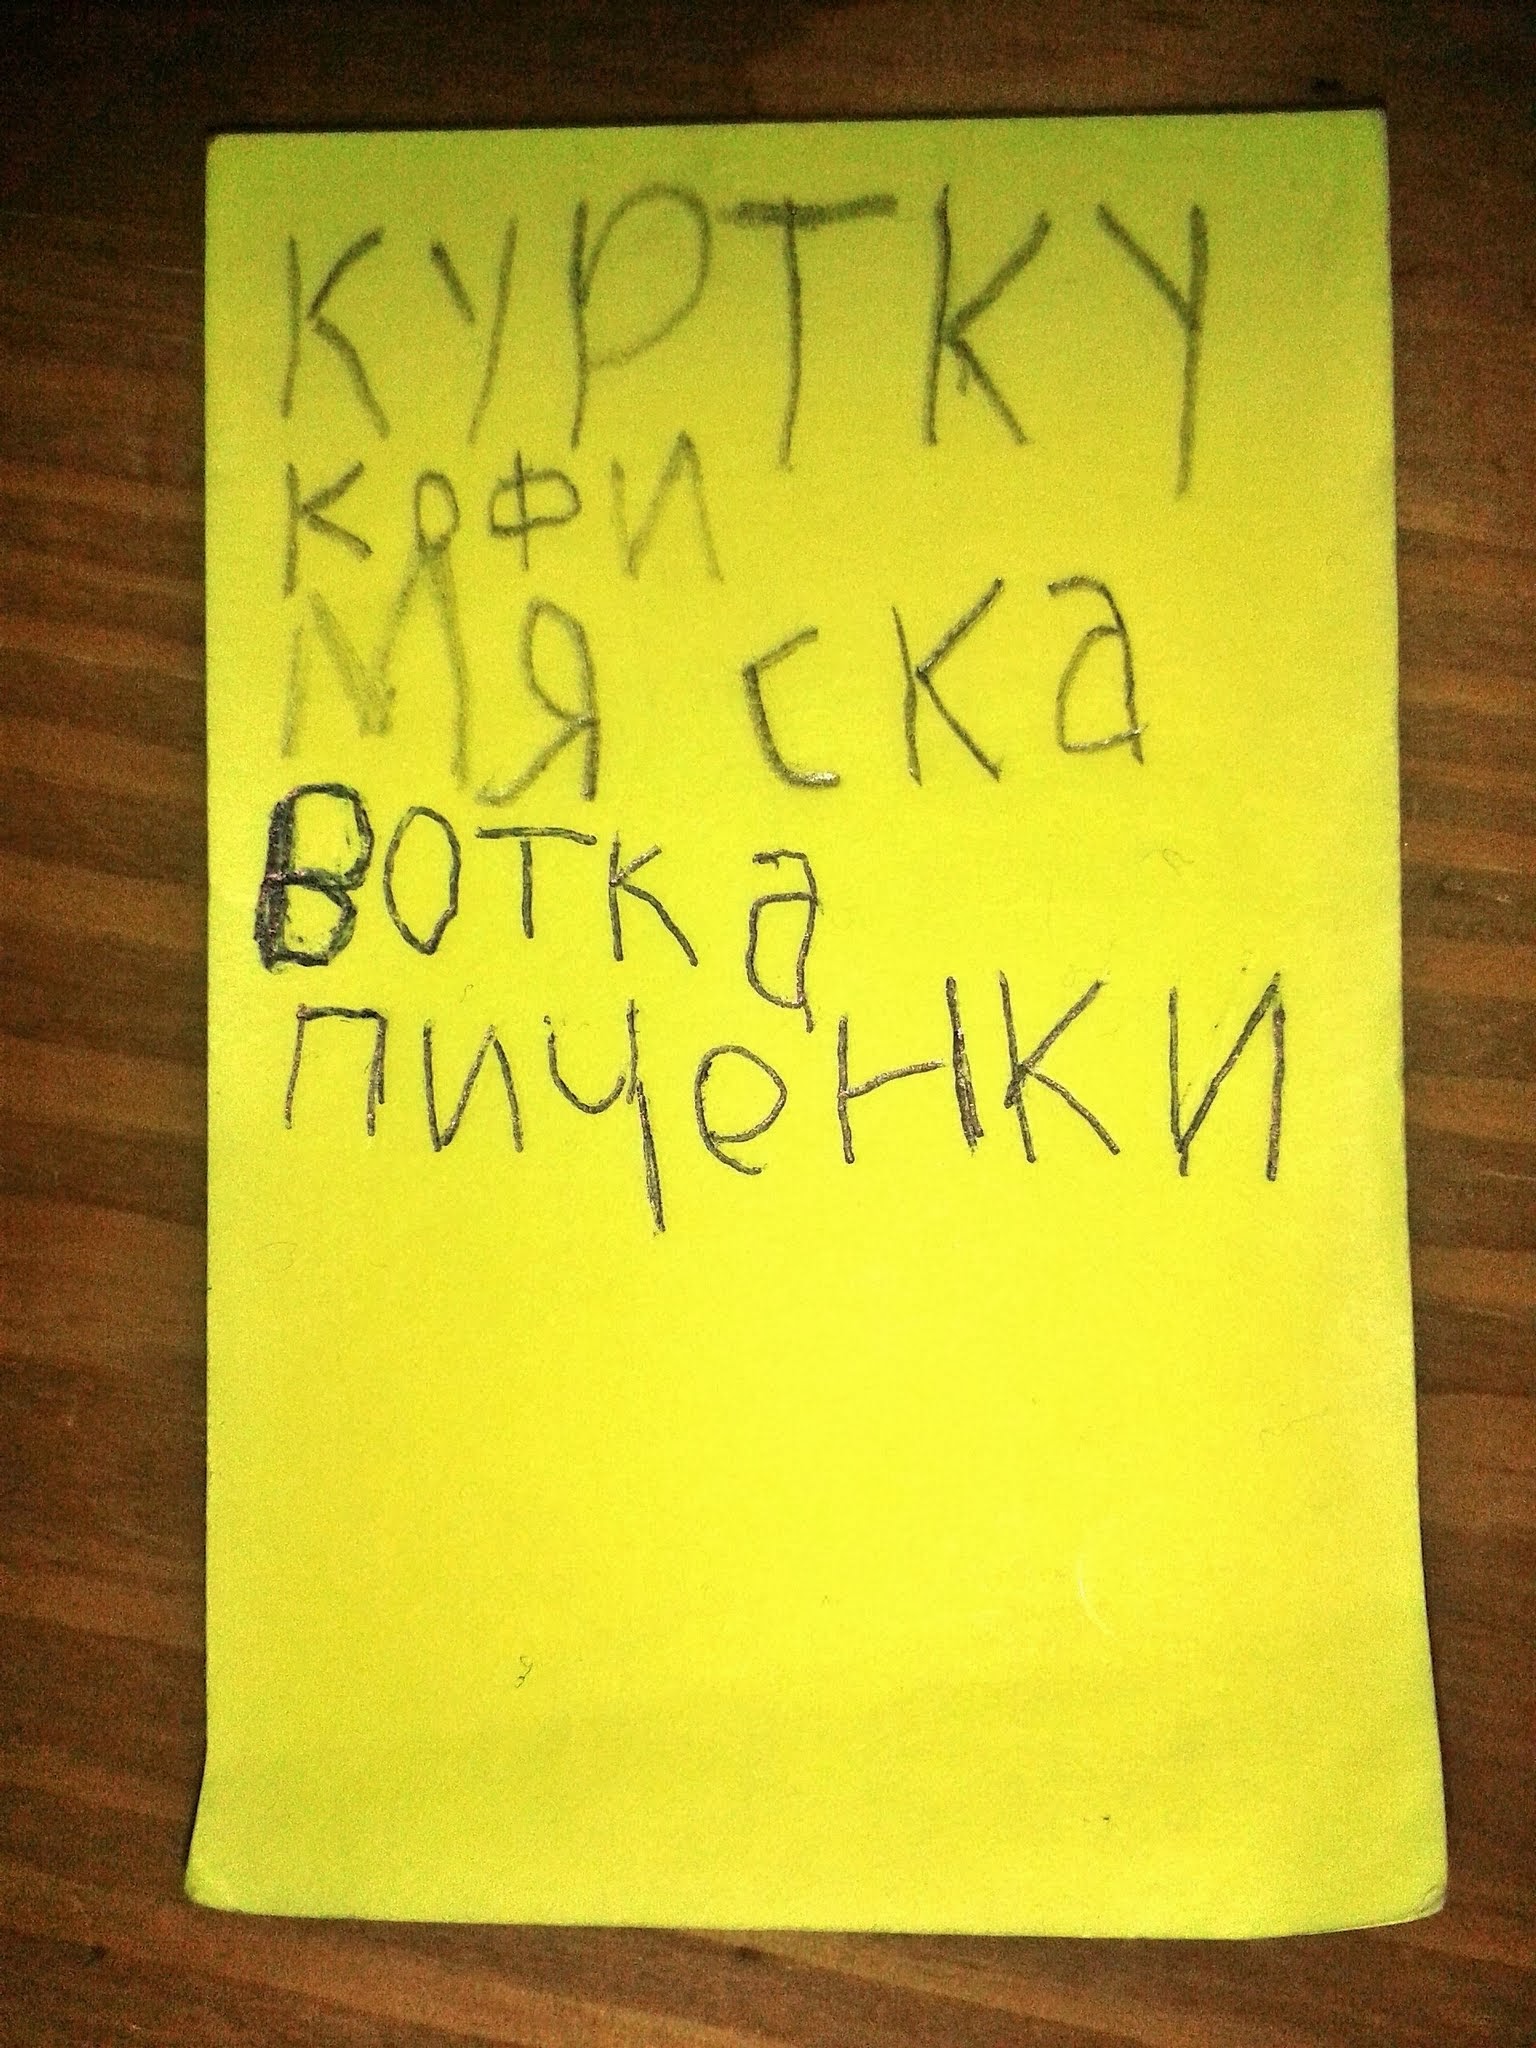 КУРТКУ
кофи
Мяска
Вотка
пиченки